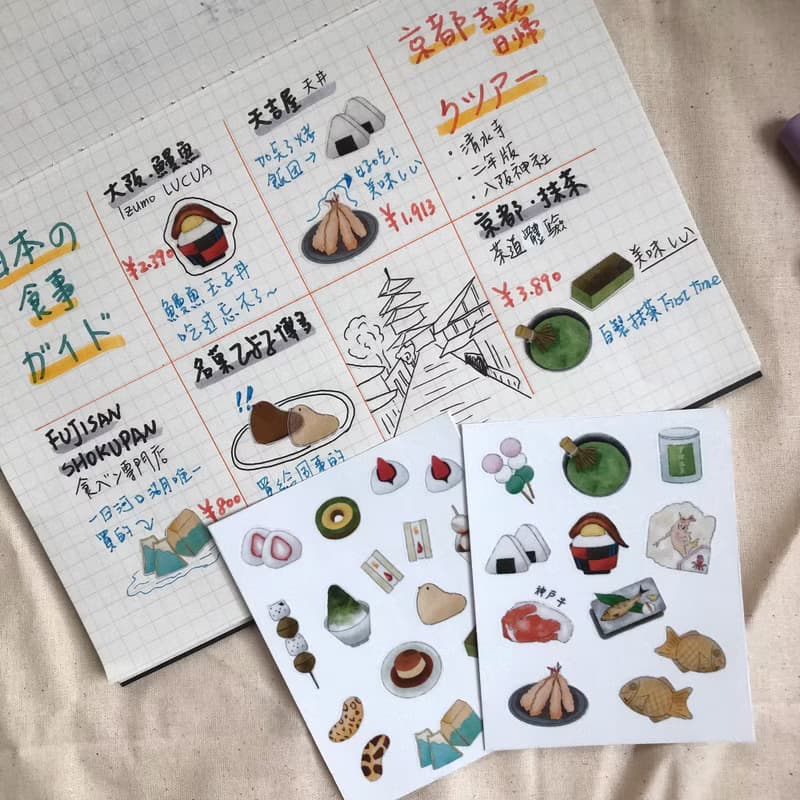 日本の
食事
ガイド
大阪・鰻魚
Izumo LUCUA
¥2.390
鰻魚玉子丼
吃过忘不了~
天吉屋 天丼
加点了烤
飯団→
好吃!
美味しい
¥1.913
京都寺院
日帰
クツアー
・清水寺
・二年版
・八阪神社
京都・抹茶
茶道體驗
¥3.890
美味しい
自製抹茶First Time
FUJISAN
SHOKUPAN
食ベン專門店
¥800
買的~
名菓ひよ子博多
!!
買給同事的
神戸牛